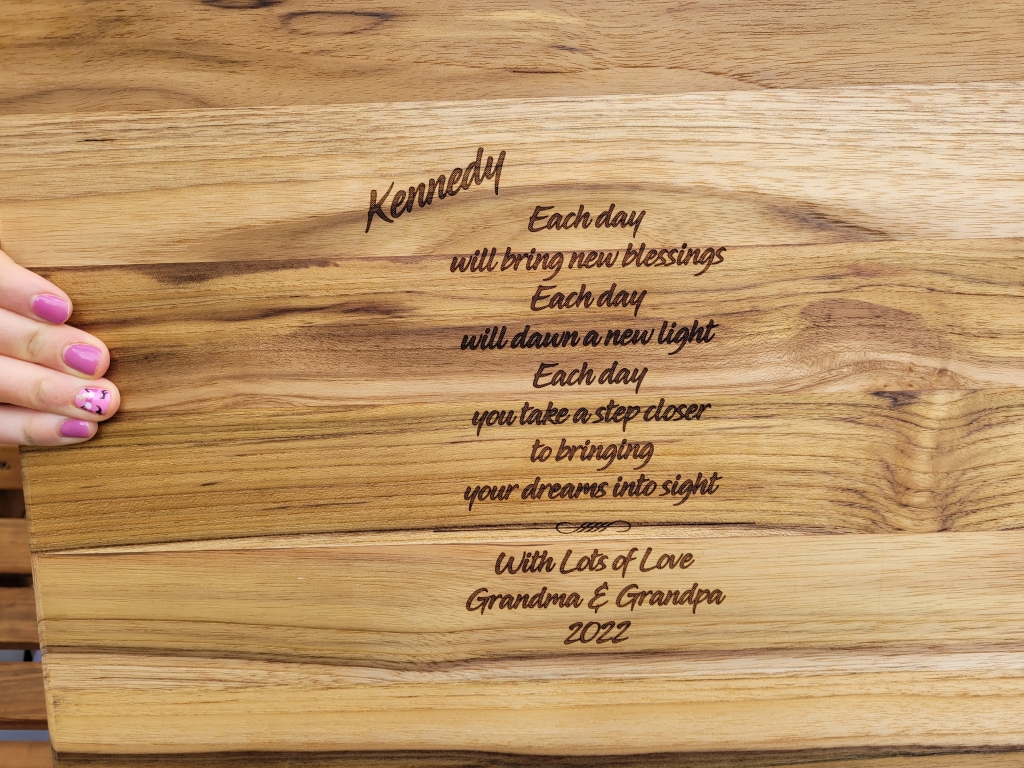 Kennedy
Each day
will bring new blessings
Each day
will dawn a new light
Each day
you take a step closer
to bringing
your dreams into sight
With Lots of Love
Grandma & Grandpa
2022